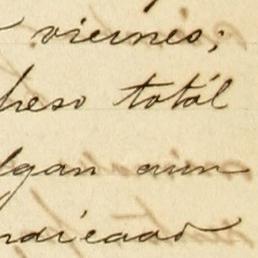 viernes;
peso totál
lgan aun
ndicado